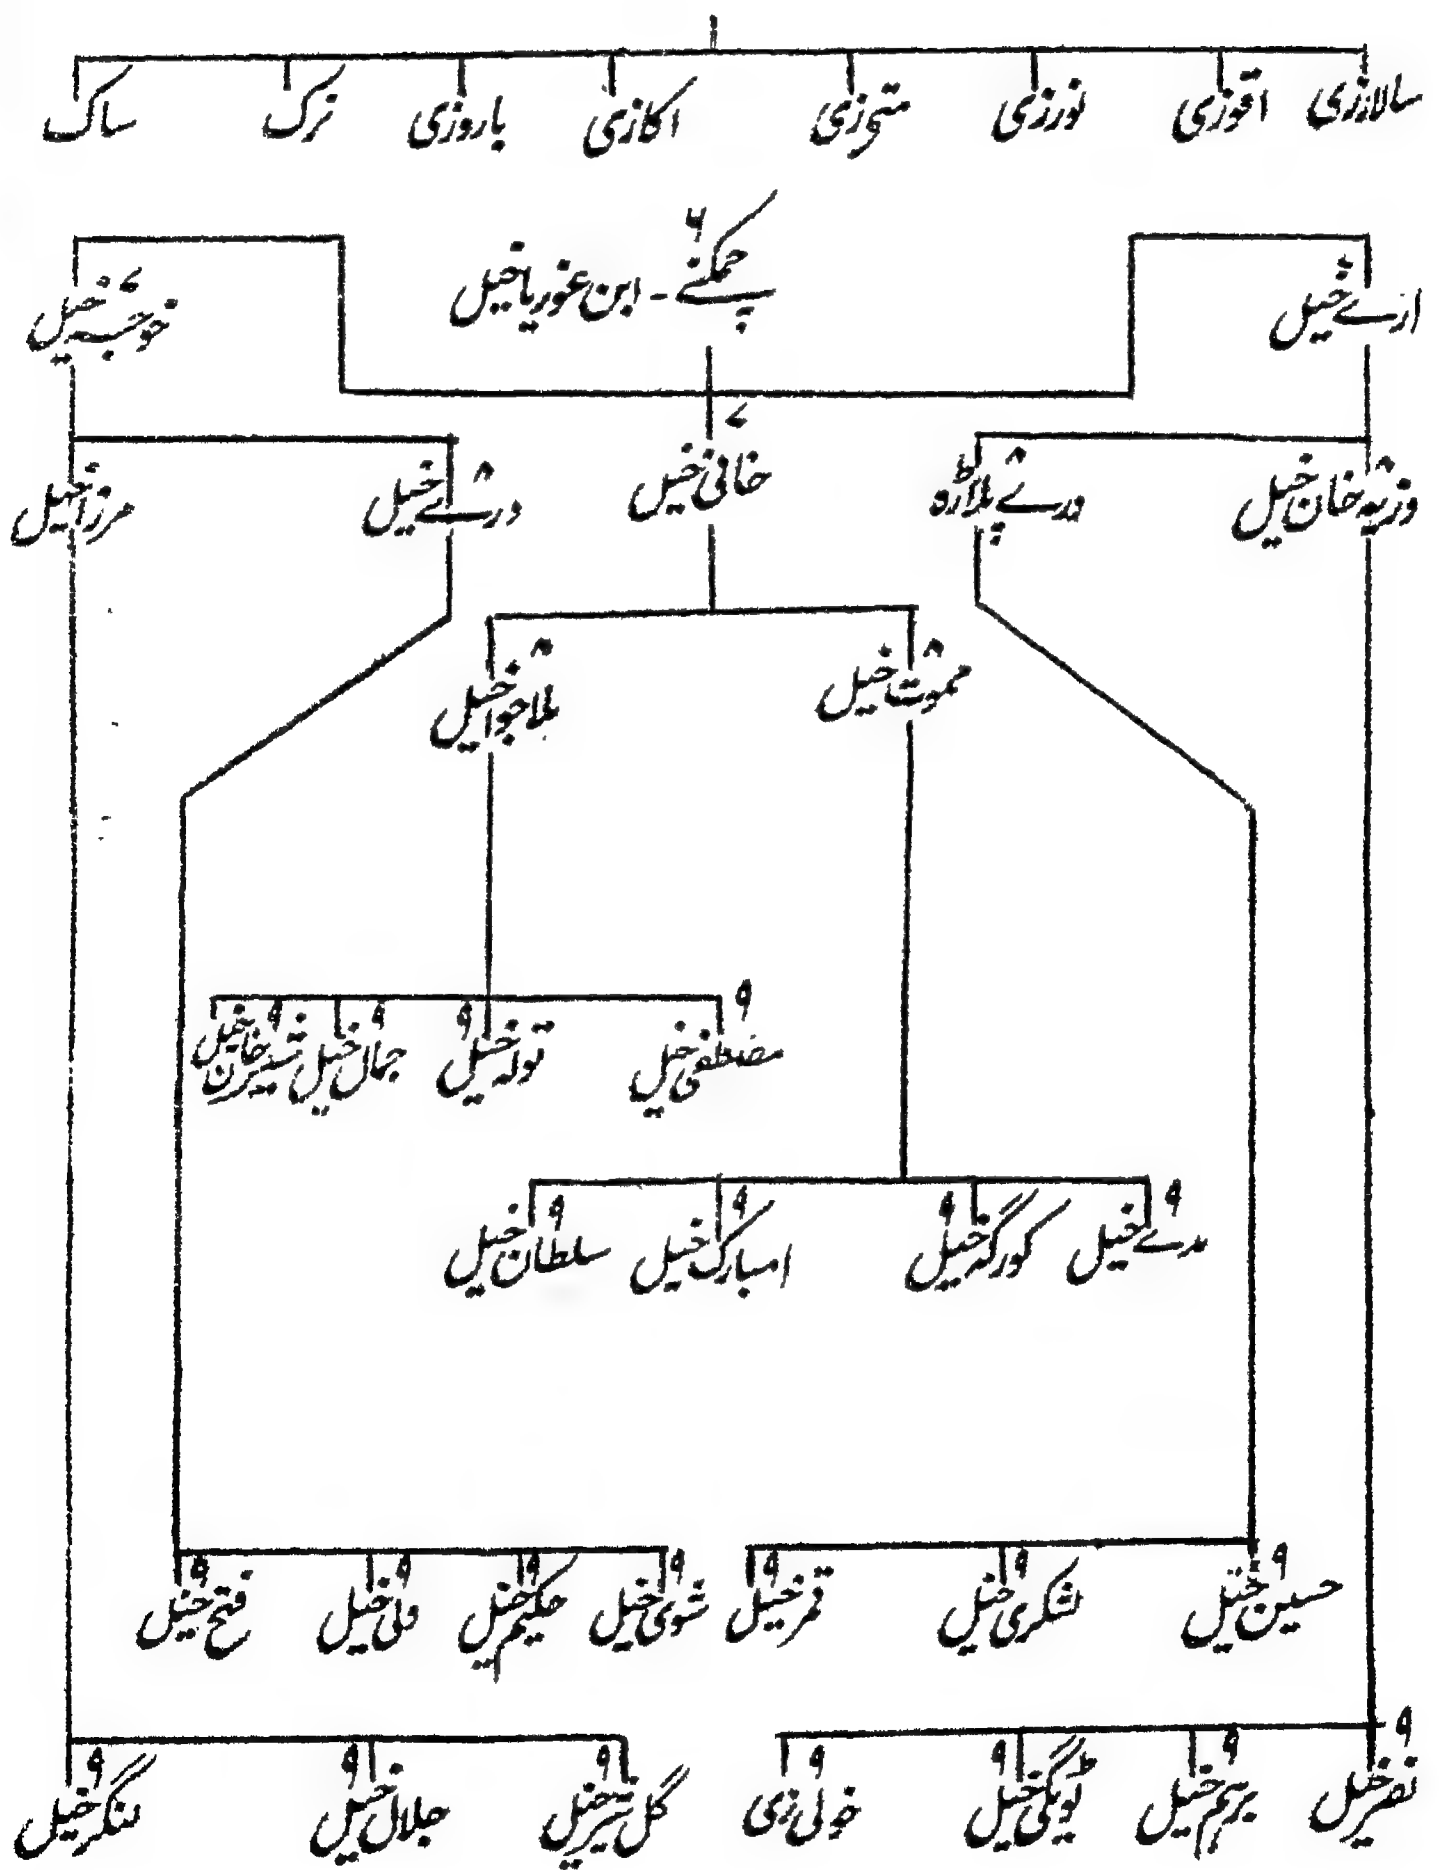 سالارزی اقوزی نورزی متحرزی اکازی باروزی ترک ساک
چمکنے ۶ - ابن غوریاخیل
ارے خیل ۷ خوجہ خیل ۷
خانی خیل ۷
وزیر خان خیل ۸ درے پلاڑہ ۸ درے خیل ۸ مرزا خیل ۸
مموت خیل ۸ ملا جوا خیل ۸
مصطفی خیل ۹ تولہ خیل ۹ جمال خیل ۹ شیرن خانخیل ۹
مدے خیل ۹ کورگہ خیل ۹ امبارک خیل ۹ سلطان خیل ۹
حسین خیل ۹ لشکری خیل ۹ قمر خیل ۹ شوی خیل ۹ حکیم خیل ۹ ولی خیل ۹ فتح خیل ۹
نصر خیل ۹ برہم خیل ۹ ٹوپگی خیل ۹ خولی زی ۹ گل شیر خیل ۹ جلال خیل ۹ لنگر خیل ۹